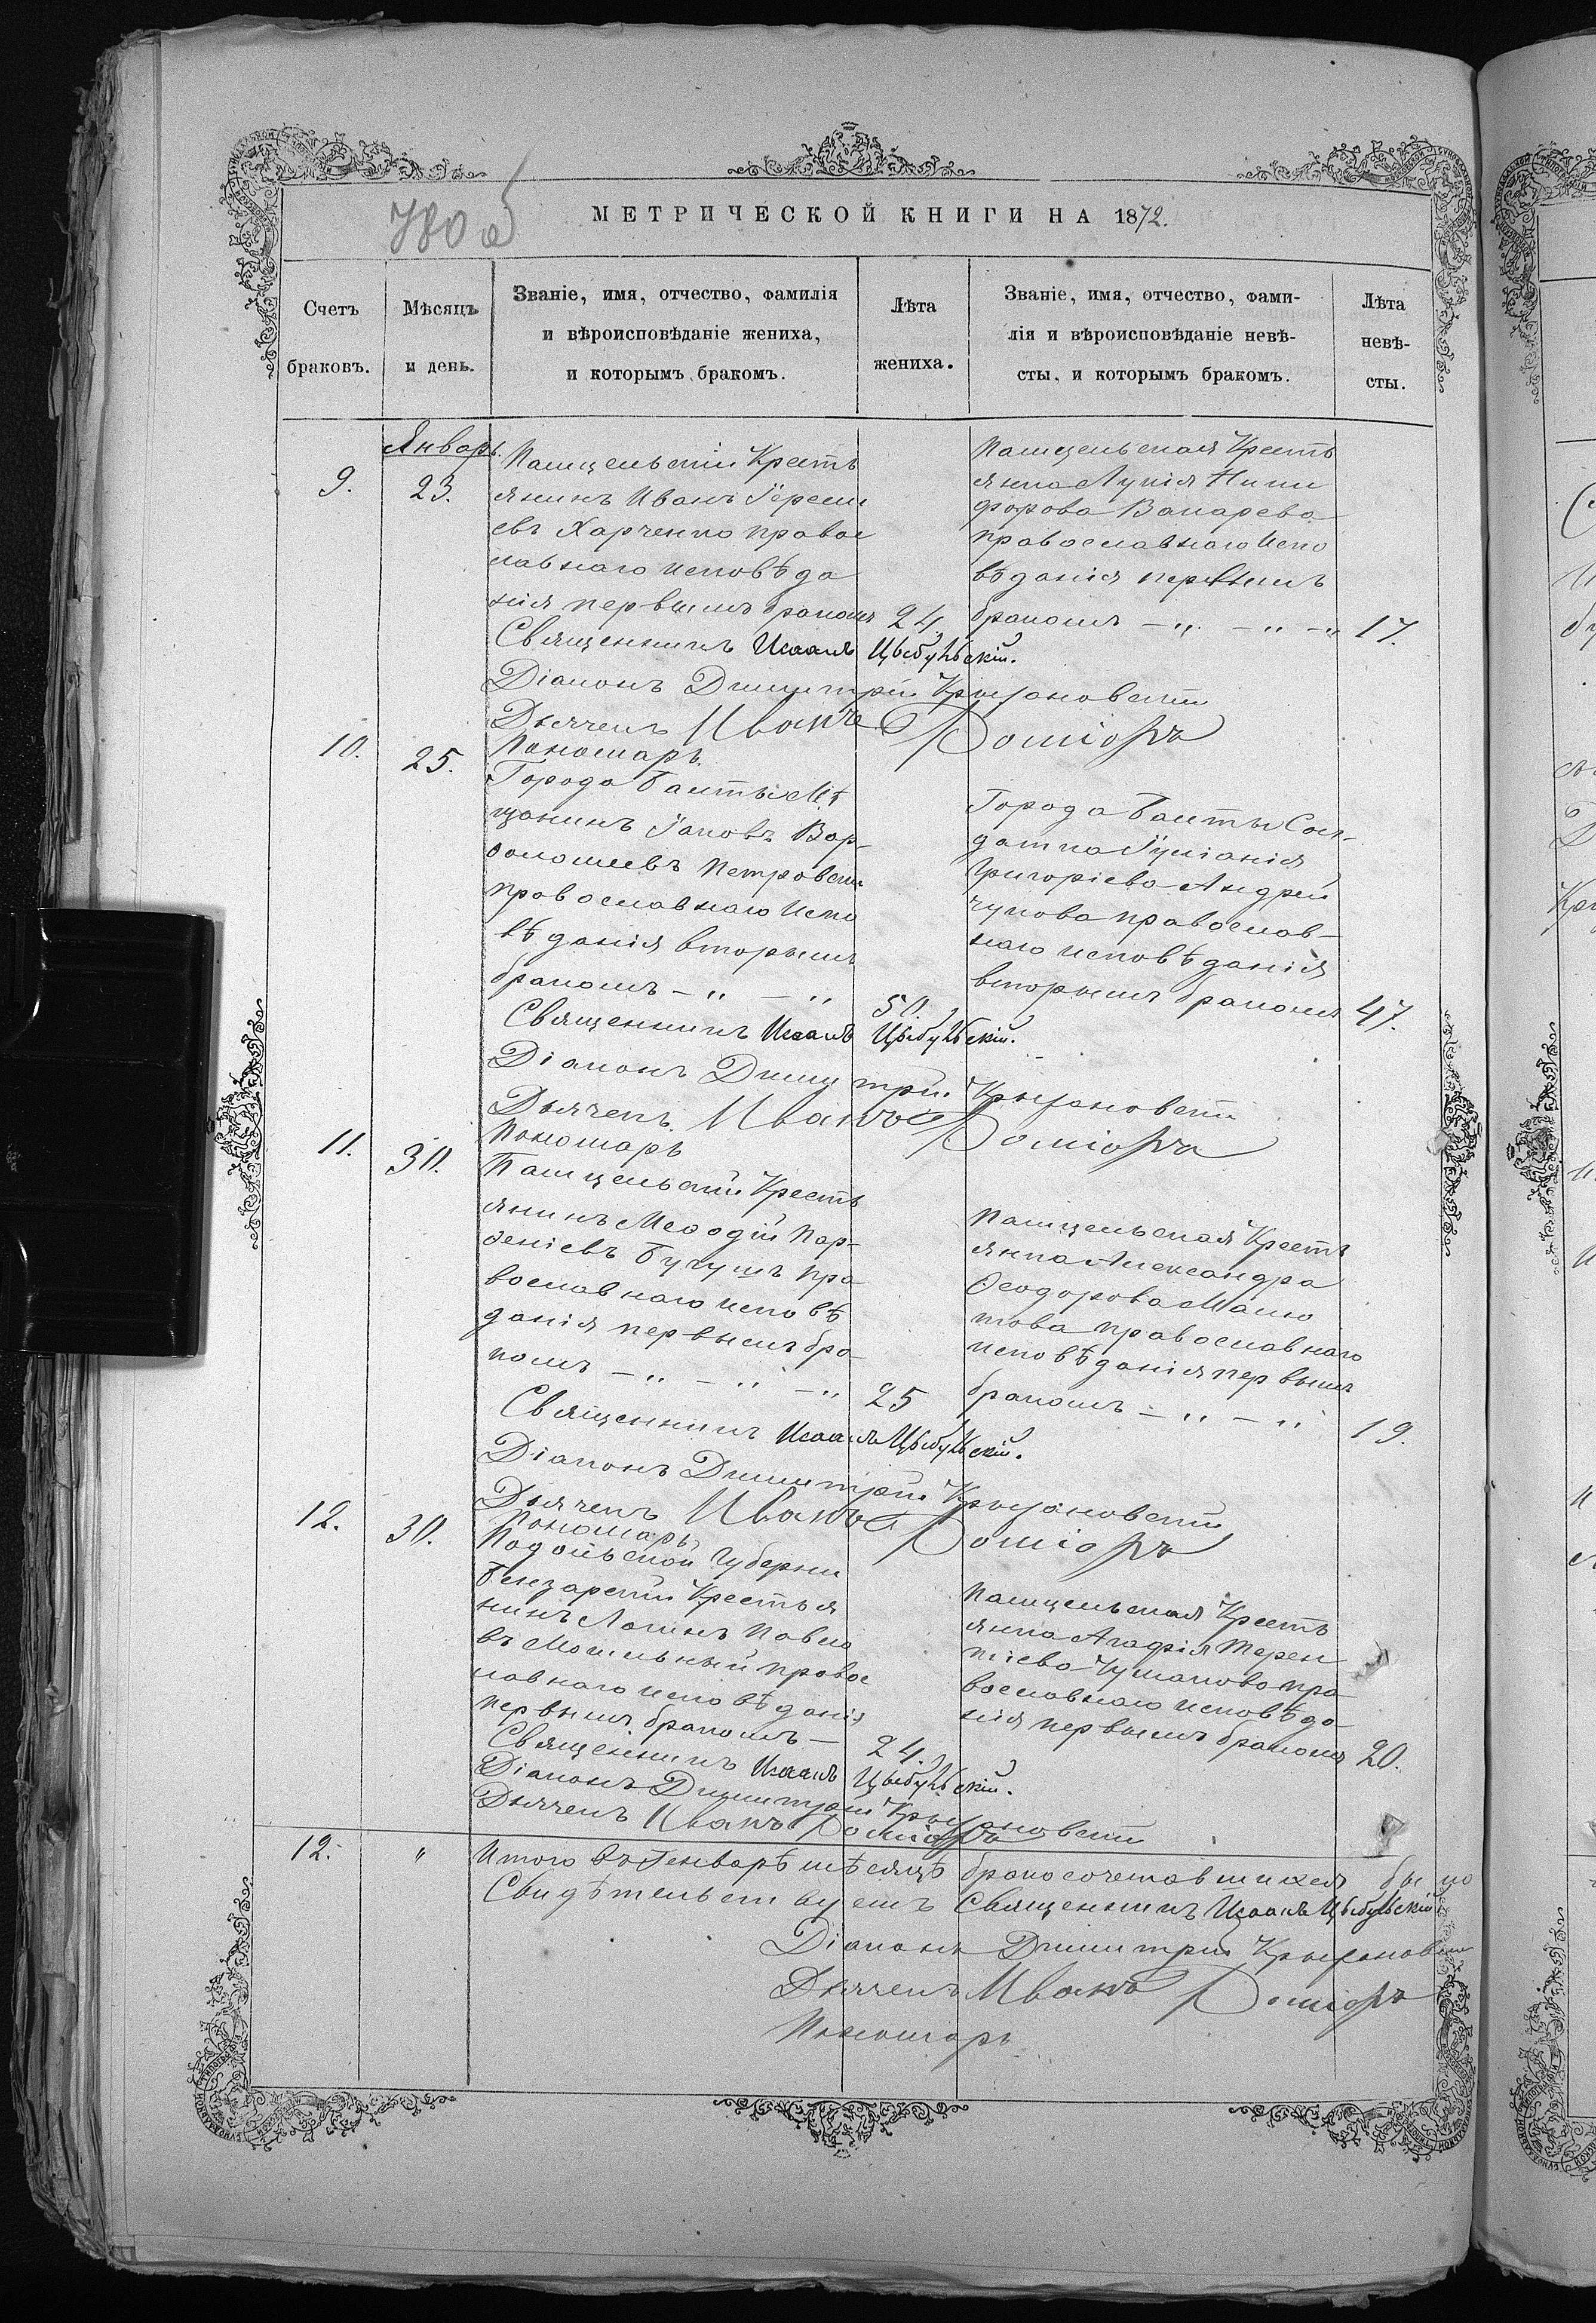 780 об
МЕТРИЧЕСКОЙ КНИГИ НА 1872.
Счетъ браковъ.
Мѣсяцъ и день.
Званіе, имя, отчество, фамилія
и вѣроисповѣданіе жениха,
и которымъ бракомъ.
Лѣта жениха.
Званіе, имя, отчество, фами-
лія и вѣроисповѣданіе невѣ-
сты, и которымъ бракомъ.
Лѣта невѣ-
сты.
Январь
9.
23.
Пашцельскій Кресть
янинъ Иванъ Іереми
евъ Харченко правос
лавнаго исповѣда
нія первымъ бракомъ
24.
Пашцельская Кресть
янка Лукія Ники
форова Вакарева
православнаго испо
вѣданія первымъ
бракомъ — „ — „ — „
17.
Священникъ Исаакъ Цыбульскій.
Діаконъ Димитрій Крыжановскій
Дьячекъ Иванъ
Пономарь
10.
25.
Города Балты Мѣ
щанинъ Іаковъ Вар-
ѳоломеевъ Петровскій
православнаго испо
вѣданія вторымъ
бракомъ — „ — „
50.
Города Балты Сол-
датка Іуліанія
Григоріева Андрей
чукова православ-
наго исповѣданія
вторымъ бракомъ
47.
Священникъ Исаакъ Цыбульскій.
Діаконъ Димитрій Крыжановскій
Дьячекъ Иванъ
Пономарь
11.
30.
Пашцельскій Кресть
янинъ Меѳодій Пар-
ѳеніевъ пра
вославнаго исповѣ
данія первымъ бра
комъ — „ — „ — „
25
Пашцельская Кресть
янка Александра
Ѳеодорова
православнаго
исповѣданія первымъ
бракомъ — „ — „
19.
Священникъ Исаакъ Цыбульскій.
Діаконъ Димитрій Крыжановскій
Дьячекъ Иванъ
Пономарь
12.
30.
Подольской Губерніи
Бензарскій Крестья
нинъ Логинъ Павло
въ правос
лавнаго исповѣданія
первымъ бракомъ —
24.
Пашцельская Кресть
янка Агафія Терен
тіева Чумакова пра
вославнаго исповѣда-
нія первымъ бракомъ
20.
Священникъ Исаакъ Цыбульскій.
Діаконъ Димитрій Крыжановскій
Дьячекъ Иванъ
12.
„
Итого въ Генварѣ мѣсяцѣ бракосочетавшихся было
Свидѣтельствуемъ Священникъ Исаакъ Цыбульскій
Діаконъ Димитрій Крыжановскій
Дьячекъ Иванъ
Пономарь